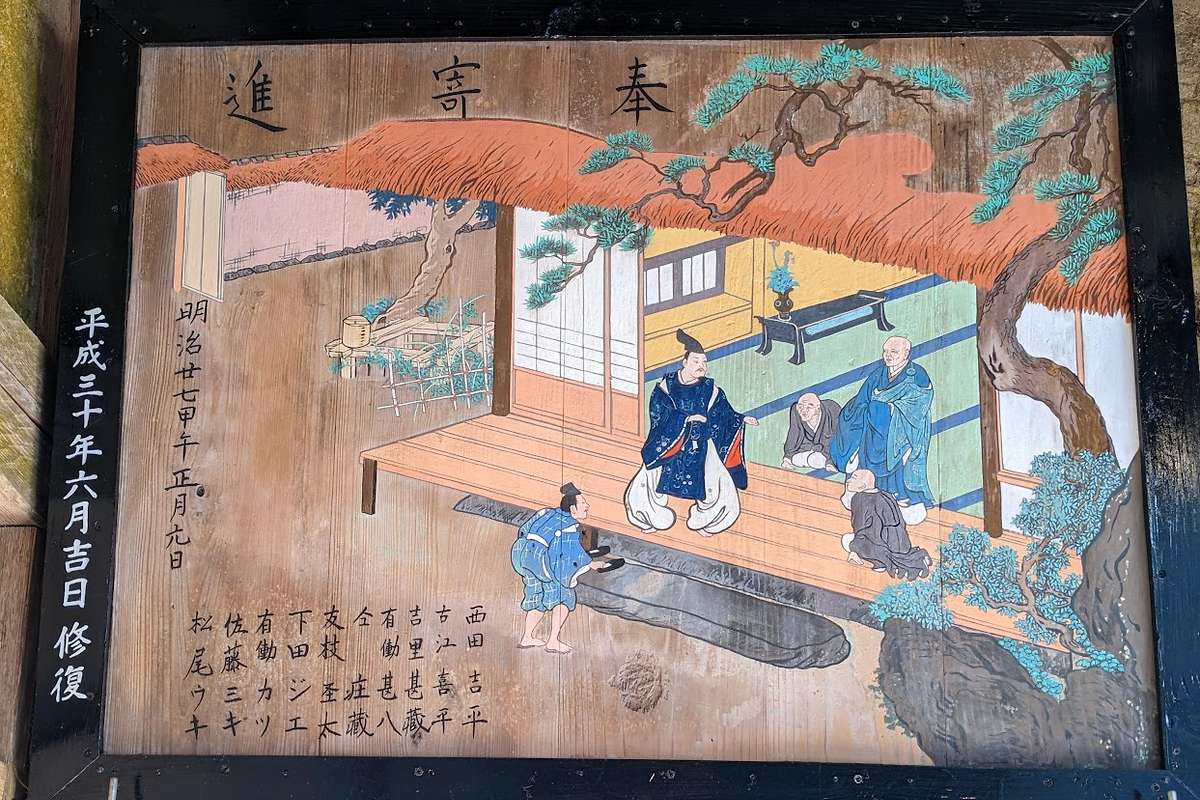 奉寄進
西田吉平
古江喜平
吉里甚藏
有働甚八
仝 庄藏
友枝
下田ジエ
有働カツ
佐藤ミキ
松尾ウキ
明治廿七甲午正月元日
平成三十年六月吉日 修復